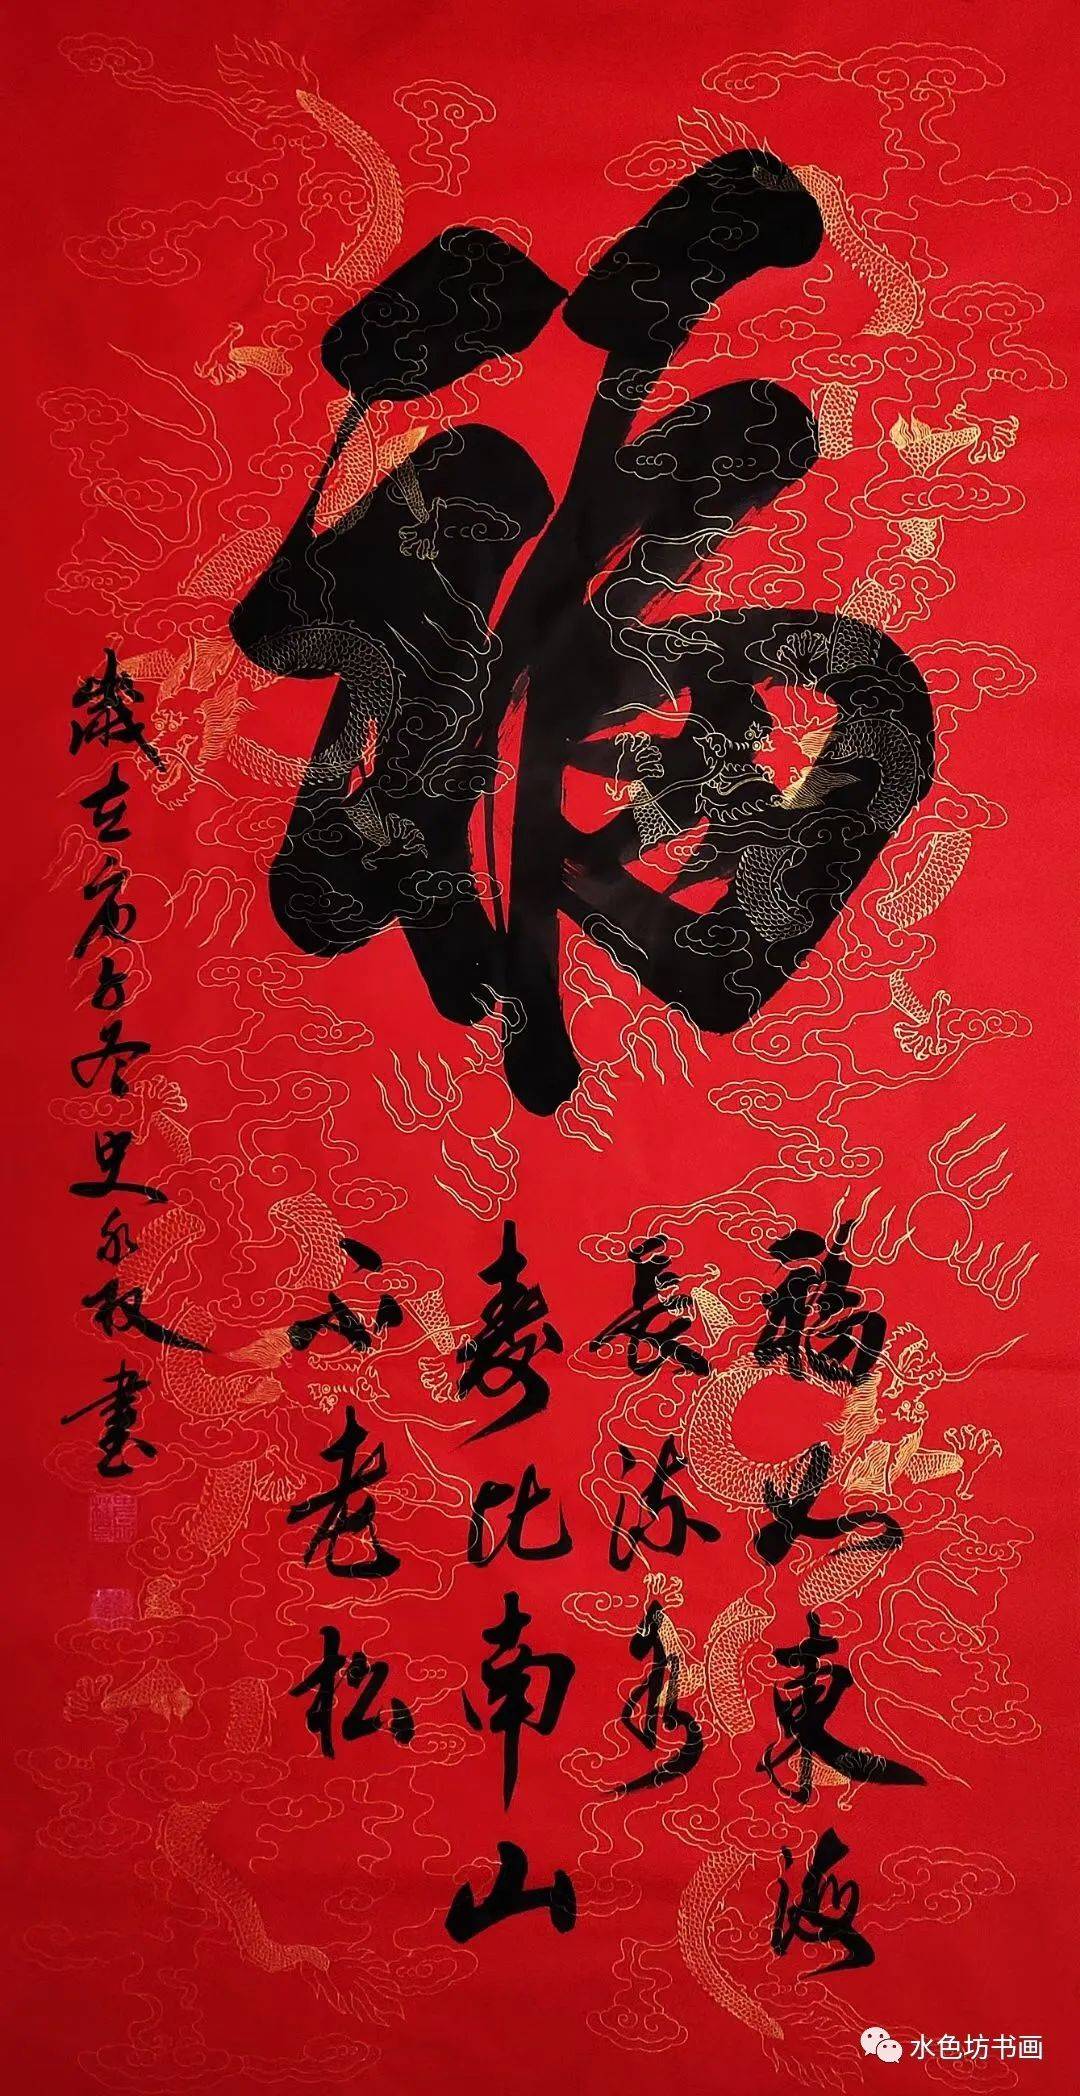 福
福如東海
長流水
壽比南山
不老松
歲在庚子冬史永牧書
水色坊书画